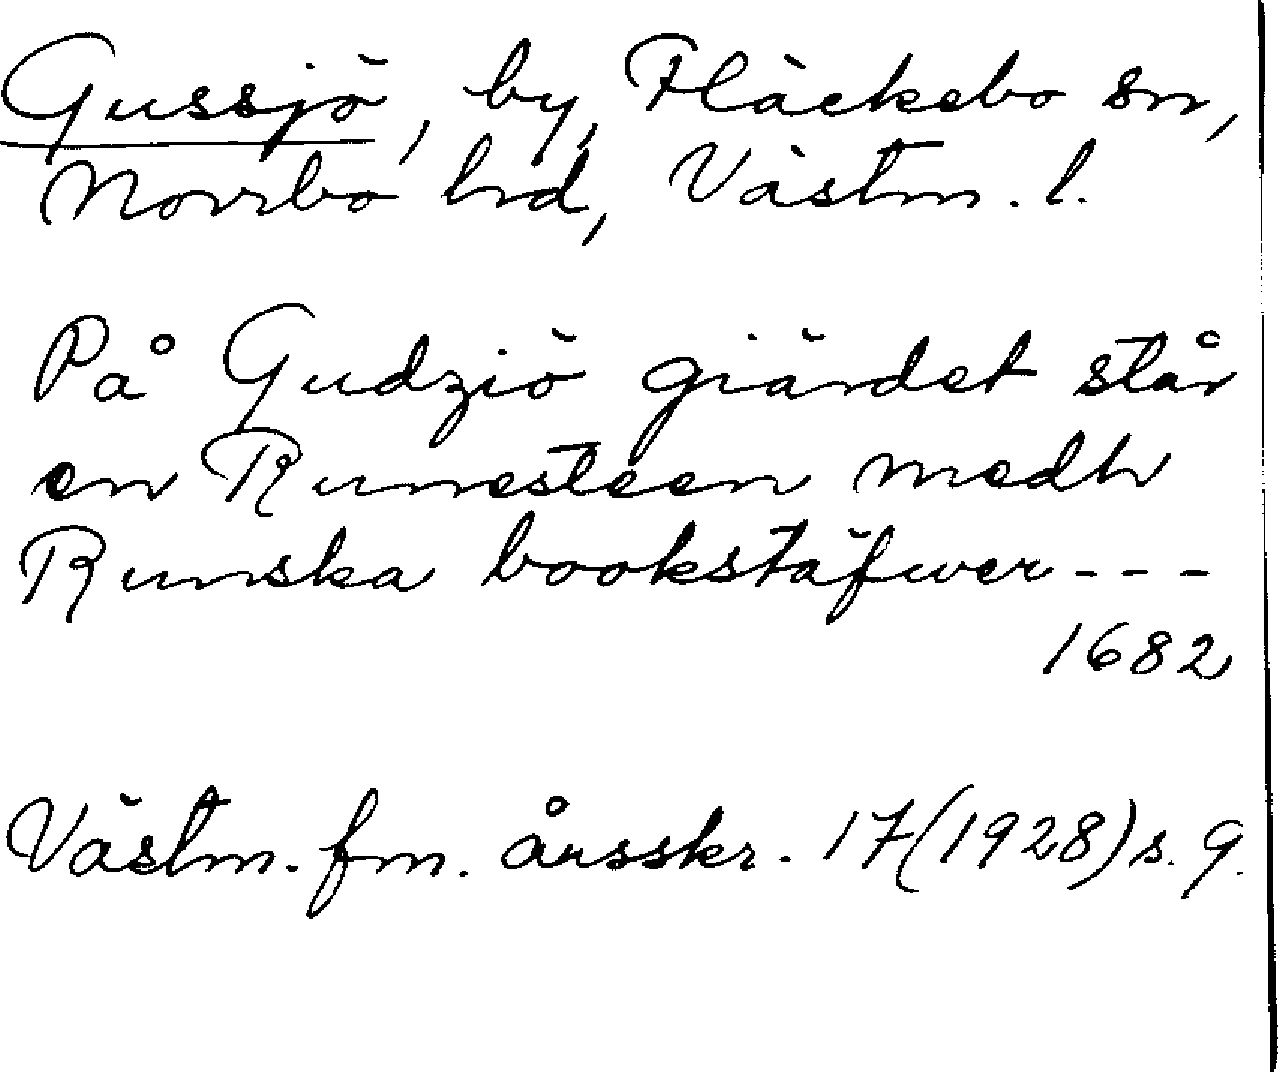 Gussjö, by, Fläckebo sn,
Norrbo hd, Västm. l.
På Gudziö giärdet står
en Runesteen medh
Runska bookstäfwer - - -
1682
Västm. fm. årsskr. 17 (1928) s. 9.